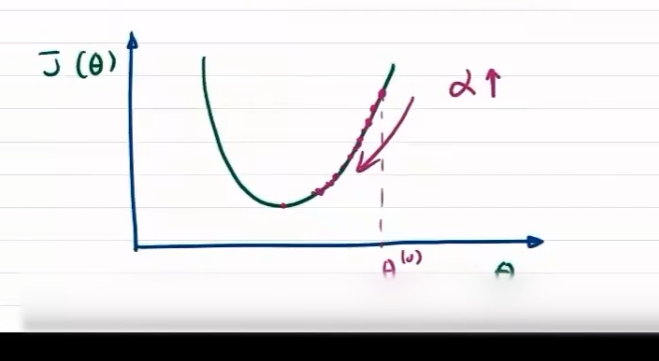 J (θ)
α↑
θ⁽⁰⁾
θ